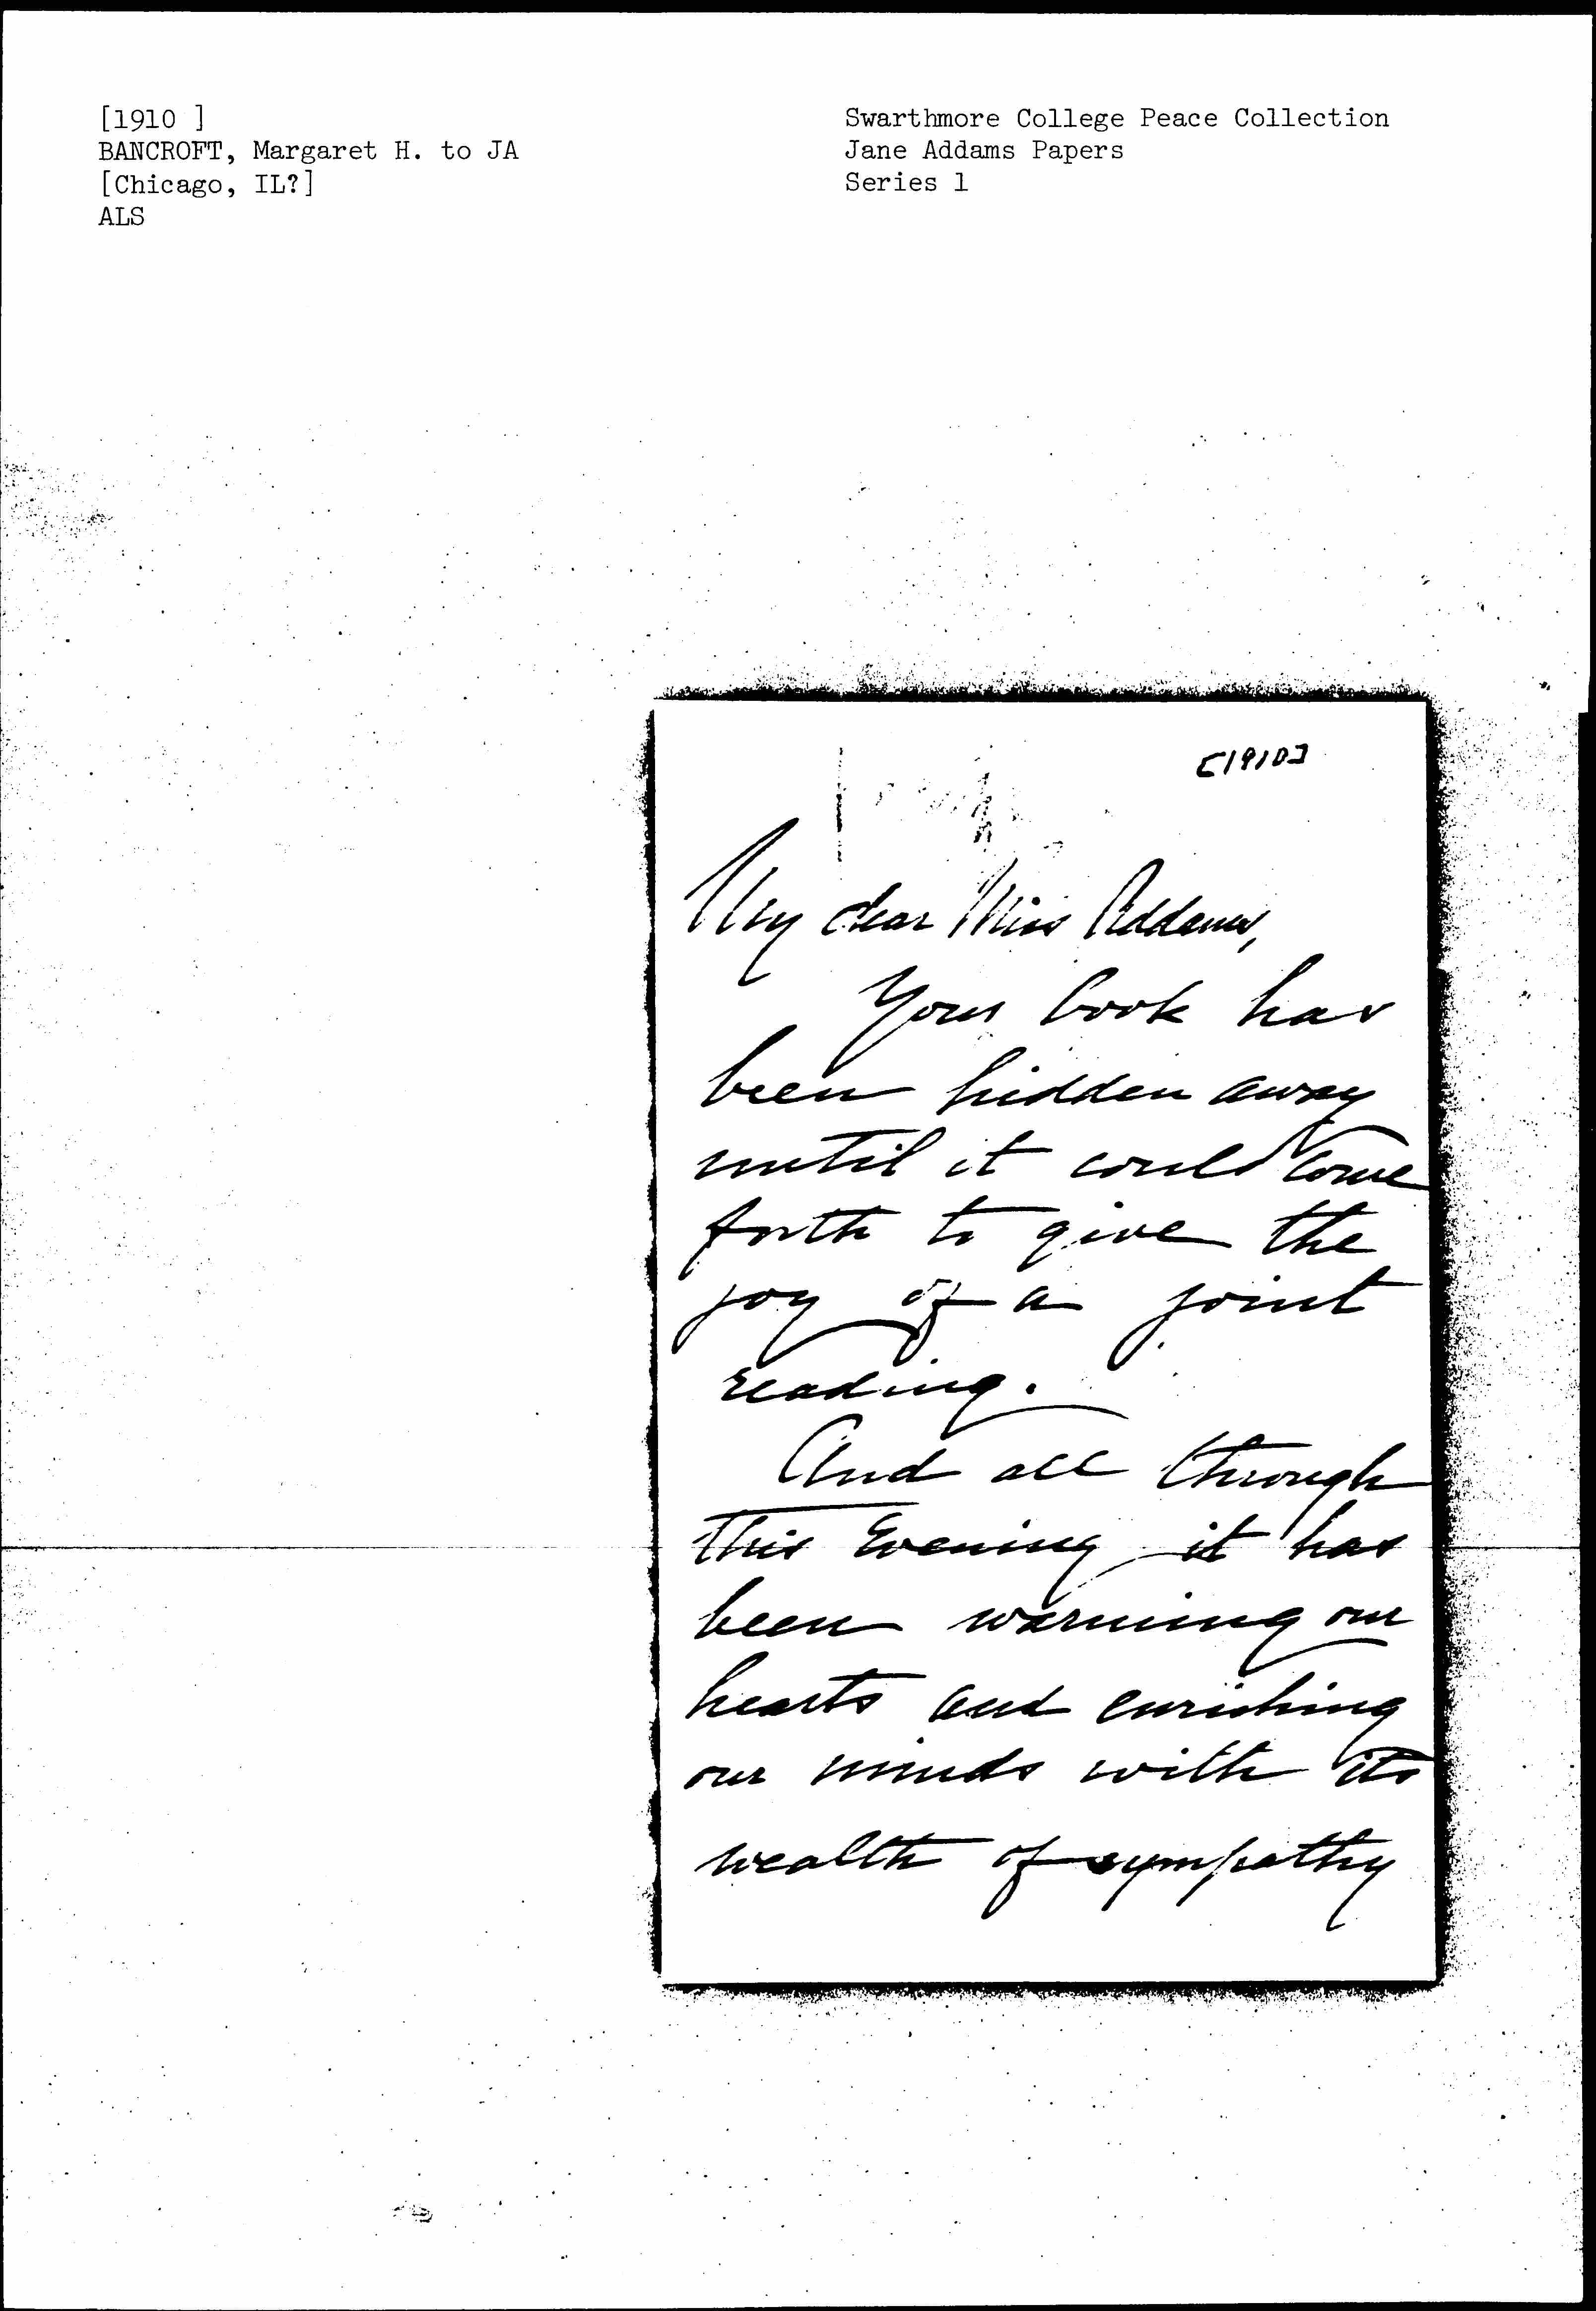 [1910 ]
BANCROFT, Margaret H. to JA
[Chicago, IL?]
ALS
Swarthmore College Peace Collection
Jane Addams Papers
Series 1
[1910]
My dear Miss Addams,
Your book has
been hidden away
until it could come
forth to give the
joy of a joint
reading.
And all through
this Evening it has
been warming our
hearts and enriching
our minds with its
wealth of sympathy